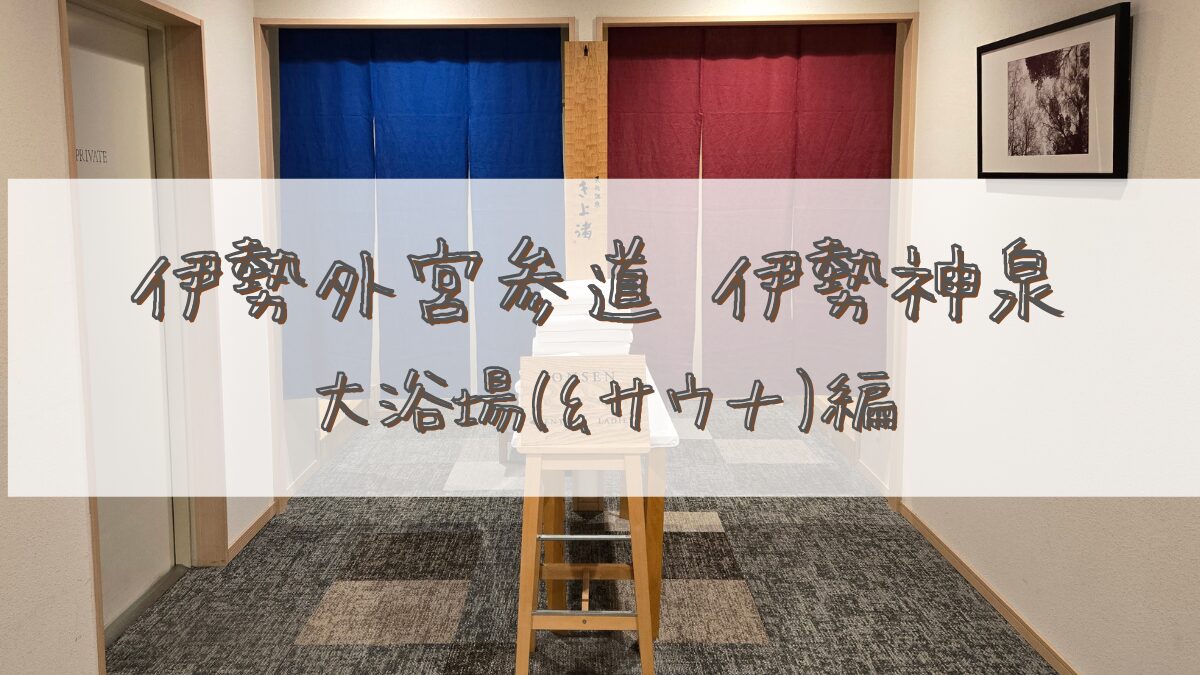 PRIVATE
伊勢外宮参道 伊勢神泉
ONSEN
大浴場(&サウナ)編
LADIES